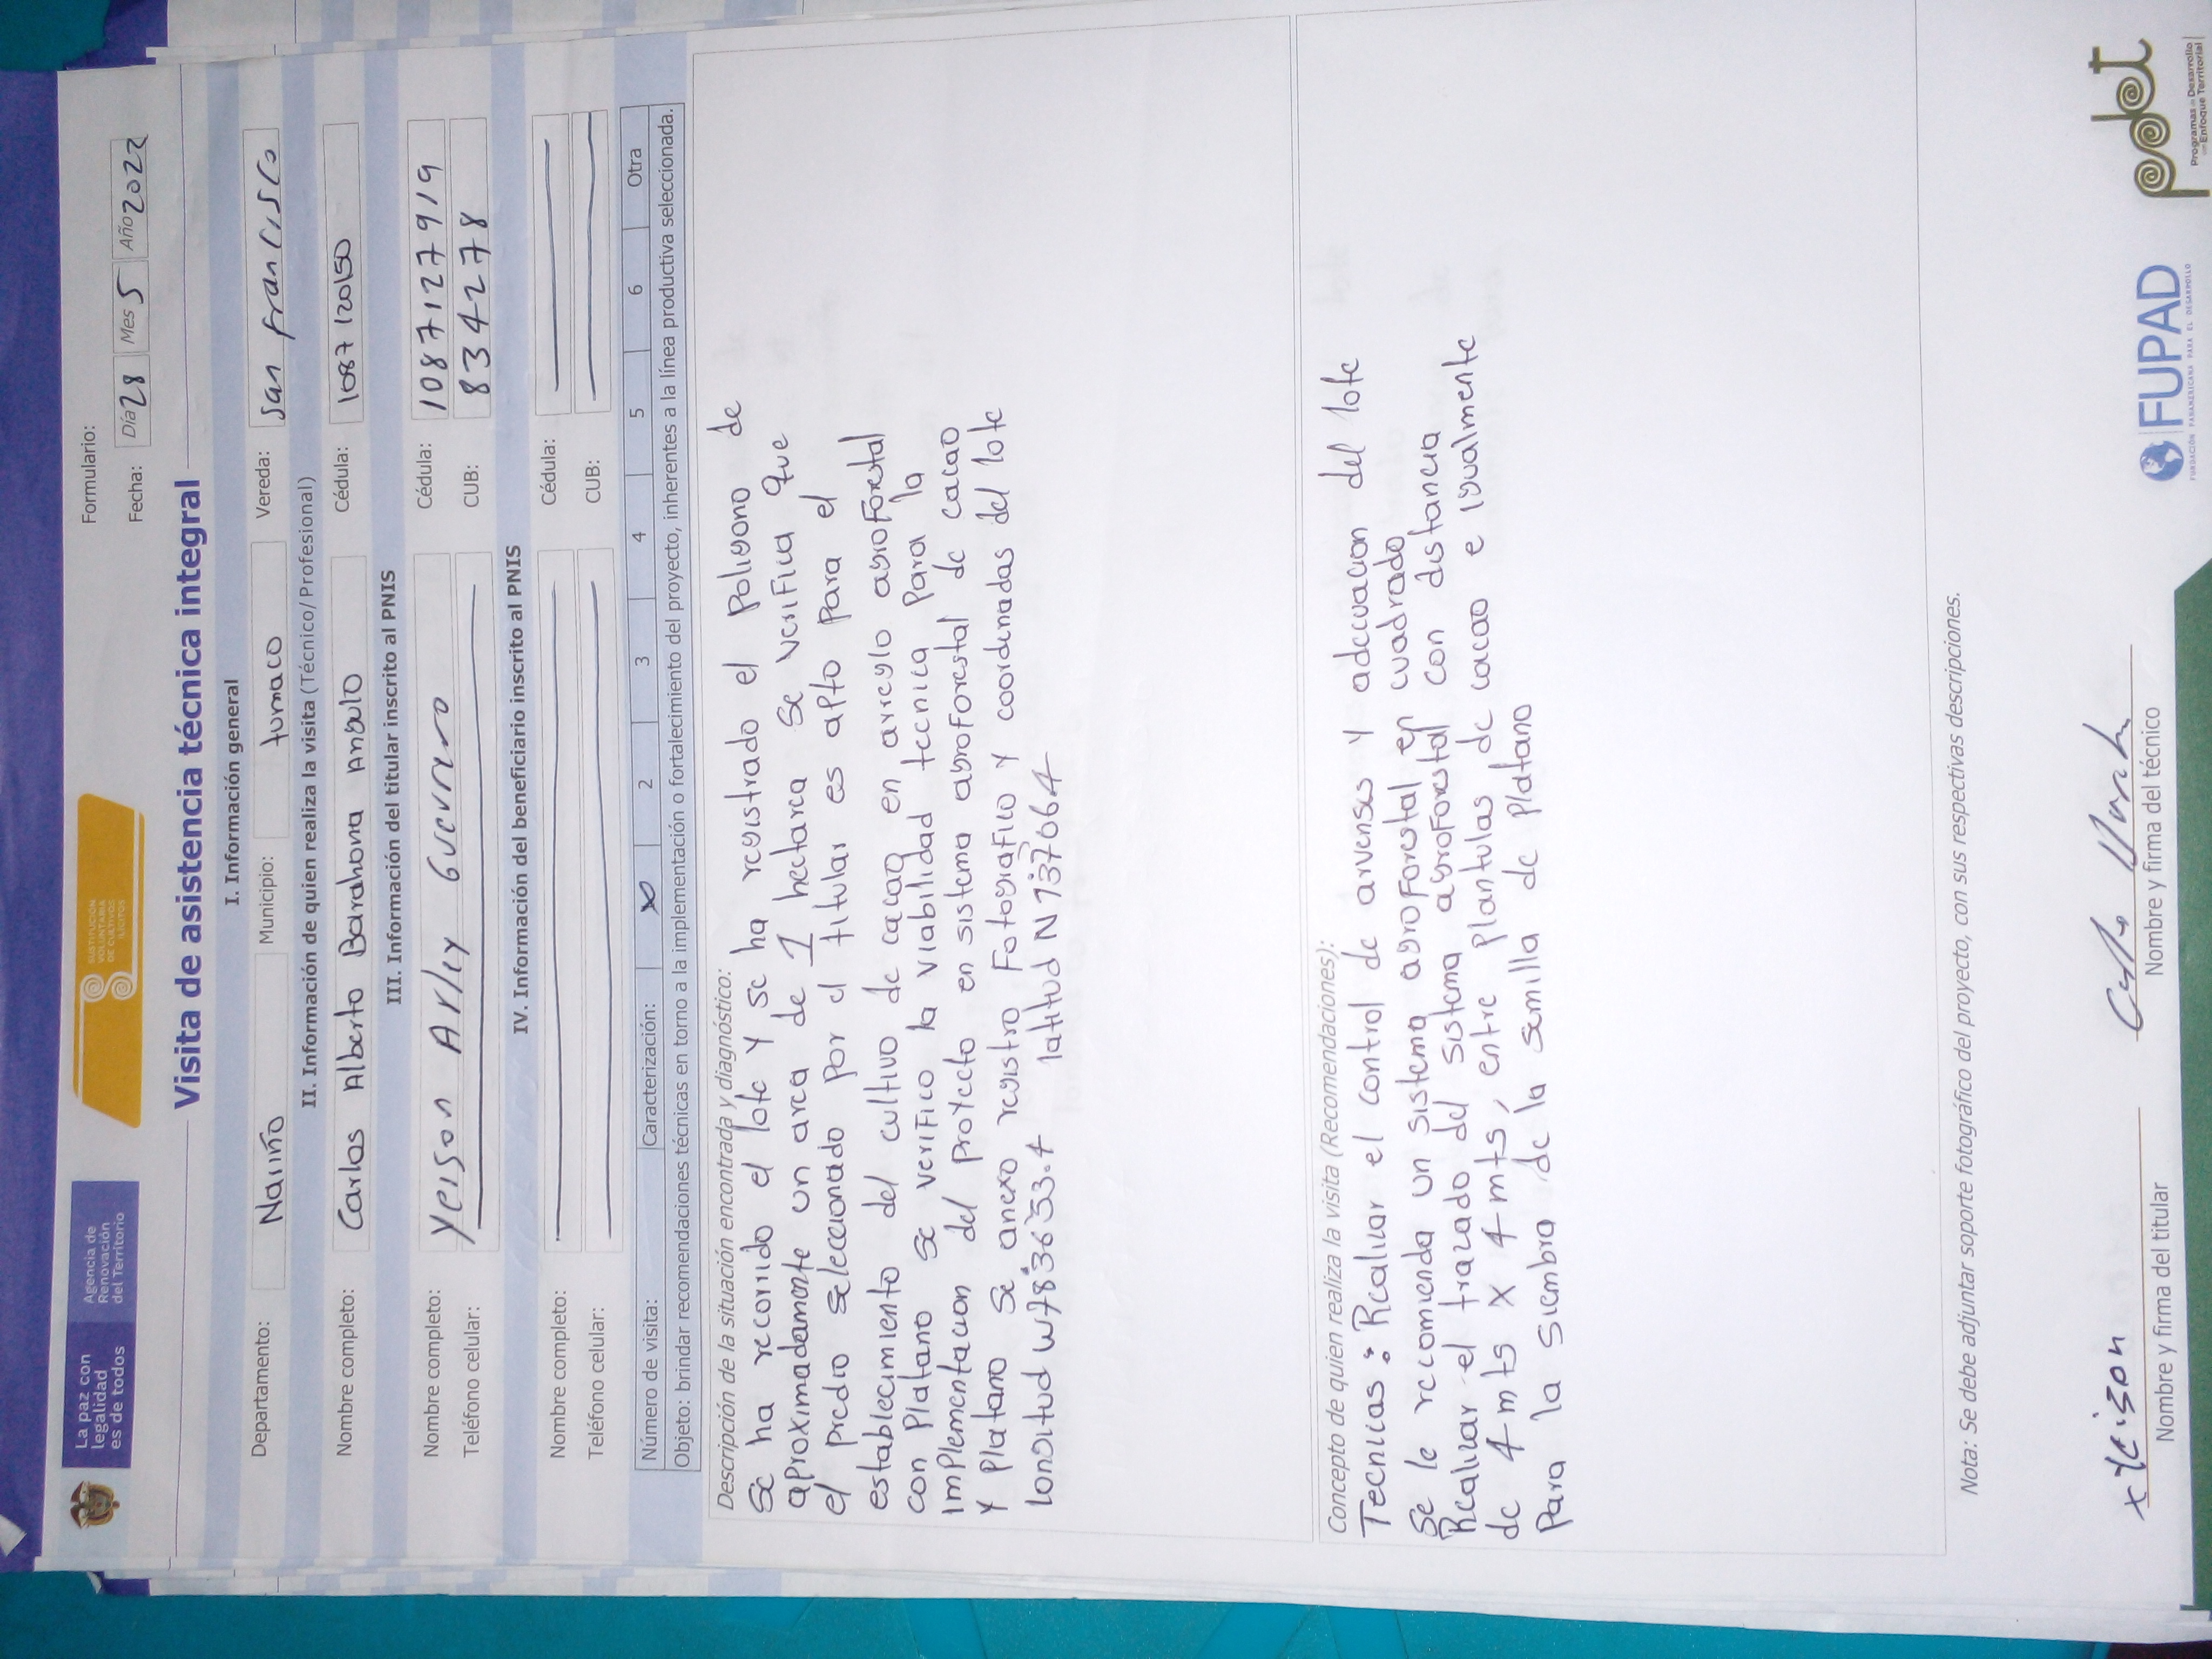 La paz con
legalidad
es de todos
Agencia de
Renovación
del Territorio
SUSTITUCIÓN
VOLUNTARIA
DE CULTIVOS
ILÍCITOS
Formulario:
Fecha: Día 28 Mes 5 Año 2022
Visita de asistencia técnica integral
I. Información general
Departamento: Nariño Municipio: tumaco Vereda: San francisco
II. Información de quien realiza la visita (Técnico/Profesional)
Nombre completo: Carlos Alberto Barahona Angulo Cédula: 1087120150
III. Información del titular inscrito al PNIS
Nombre completo: Yeison Arley Guerrero Cédula: 1087127919
Teléfono celular: CUB: 834278
IV. Información del beneficiario inscrito al PNIS
Nombre completo: Cédula:
Teléfono celular: CUB:
Número de visita: Caracterización: X 2 3 4 5 6 Otra
Objeto: brindar recomendaciones técnicas en torno a la implementación o fortalecimiento del proyecto, inherentes a la línea productiva seleccionada.
Descripción de la situación encontrada y diagnóstico:
Se ha recorrido el lote Y se ha registrado el poligono de
aproximadamente un area de 1 hectarea se verifica que
el predio seleccionado por el titular es apto para el
establecimiento del cultivo de cacao en arreglo agroforestal
con Platano se verifico la viabilidad tecnica para la
implementacion del proyecto en sistema agroforestal de cacao
Y platano se anexo registro fotografico Y coordenadas del lote
longitud W78°36'53.4 latitud N1°37'066.4
Concepto de quien realiza la visita (Recomendaciones):
Tecnicas: Realizar el control de arvenses Y adecuacion del lote
Se le recomienda un sistema agroforestal en cuadrado
Realizar el trazado del sistema agroforestal con distancia
de 4 mts X 4 mts, entre plantulas de cacao e igualmente
para la siembra de la semilla de platano
Nota: Se debe adjuntar soporte fotográfico del proyecto, con sus respectivas descripciones.
x Yeison
Nombre y firma del titular
Nombre y firma del técnico
FUPAD
FUNDACIÓN PANAMERICANA PARA EL DESARROLLO
pdet
Programas de Desarrollo
con Enfoque Territorial